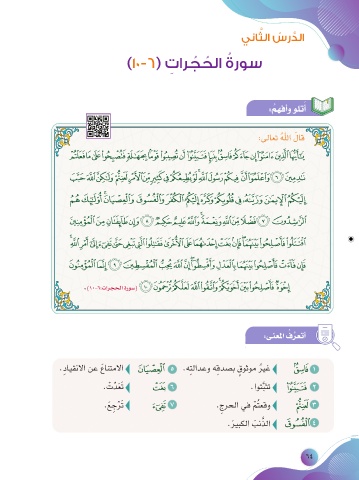 الدَّرسُ الثَّاني
سورةُ الحُجُراتِ (٦-١٠)
أتلو وأفهمُ:
قالَ اللَّهُ تعالى:
يَٰٓأَيُّهَا ٱلَّذِينَ ءَامَنُوٓاْ إِن جَآءَكُمۡ فَاسِقُۢ بِنَبَإٖ فَتَبَيَّنُوٓاْ أَن تُصِيبُواْ قَوۡمَۢا بِجَهَٰلَةٖ فَتُصۡبِحُواْ عَلَىٰ مَا فَعَلۡتُمۡ
نَٰدِمِينَ ٦ وَٱعۡلَمُوٓاْ أَنَّ فِيكُمۡ رَسُولَ ٱللَّهِۚ لَوۡ يُطِيعُكُمۡ فِي كَثِيرٖ مِّنَ ٱلۡأَمۡرِ لَعَنِتُّمۡ وَلَٰكِنَّ ٱللَّهَ حَبَّبَ
إِلَيۡكُمُ ٱلۡإِيمَٰنَ وَزَيَّنَهُۥ فِي قُلُوبِكُمۡ وَكَرَّهَ إِلَيۡكُمُ ٱلۡكُفۡرَ وَٱلۡفُسُوقَ وَٱلۡعِصۡيَانَۚ أُوْلَٰٓئِكَ هُمُ
ٱلرَّٰشِدُونَ ٧ فَضۡلٗا مِّنَ ٱللَّهِ وَنِعۡمَةٗۚ وَٱللَّهُ عَلِيمٌ حَكِيمٞ ٨ وَإِن طَآئِفَتَانِ مِنَ ٱلۡمُؤۡمِنِينَ
ٱقۡتَتَلُواْ فَأَصۡلِحُواْ بَيۡنَهُمَاۖ فَإِنۢ بَغَتۡ إِحۡدَىٰهُمَا عَلَى ٱلۡأُخۡرَىٰ فَقَٰتِلُواْ ٱلَّتِي تَبۡغِي حَتَّىٰ تَفِيٓءَ إِلَىٰٓ أَمۡرِ ٱللَّهِۚ
فَإِن فَآءَتۡ فَأَصۡلِحُواْ بَيۡنَهُمَا بِٱلۡعَدۡلِ وَأَقۡسِطُوٓاْۖ إِنَّ ٱللَّهَ يُحِبُّ ٱلۡمُقۡسِطِينَ ٩ إِنَّمَا ٱلۡمُؤۡمِنُونَ
إِخۡوَةٞ فَأَصۡلِحُواْ بَيۡنَ أَخَوَيۡكُمۡۚ وَٱتَّقُواْ ٱللَّهَ لَعَلَّكُمۡ تُرۡحَمُونَ ١٠ (سورة الحجرات: ٦-١٠)
أتعرّفُ المعنى:
١ فَاسِقُۢ غيرُ موثوقٍ بصدقِه وعدالتِه. ٥ ٱلۡعِصۡيَانَ الامتناعُ عن الانقيادِ.
٢ فَتَبَيَّنُوٓاْ تثبَّتوا. ٦ بَغَتۡ تَعدَّتْ.
٣ لَعَنِتُّمۡ وقعتُمْ في الحرجِ. ٧ تَفِيٓءَ تَرْجِعَ.
٤ ٱلۡفُسُوقَ الذَّنبَ الكبيرَ.
٦٤